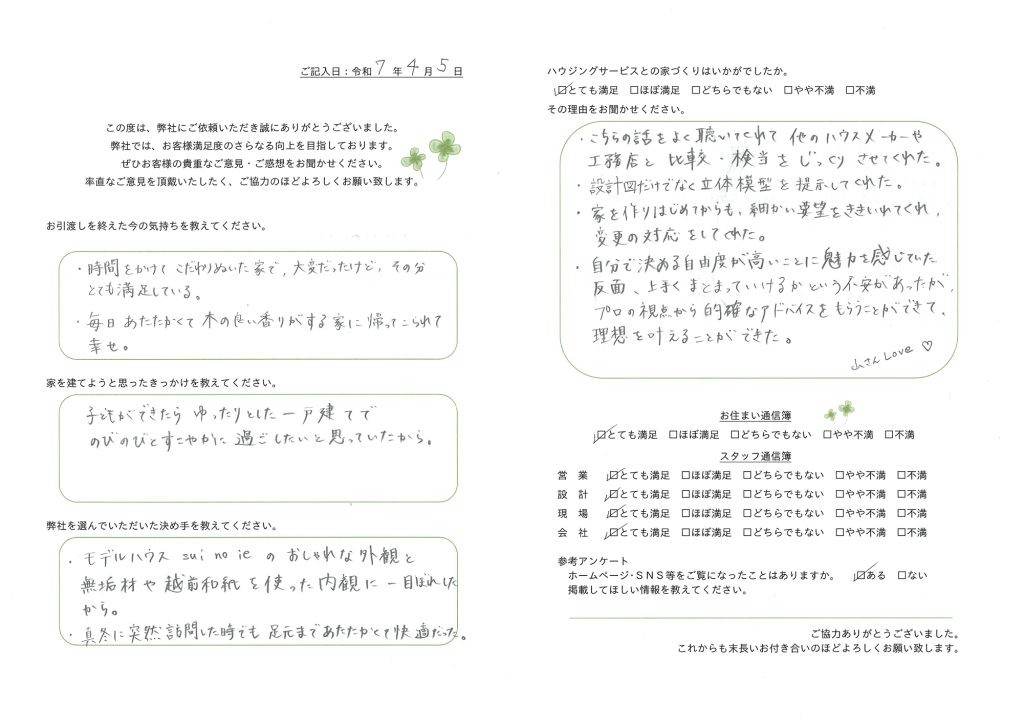 ご記入日：令和 7 年 4 月 5 日
この度は、弊社にご依頼いただき誠にありがとうございました。
弊社では、お客様満足度のさらなる向上を目指しております。
ぜひお客様の貴重なご意見・ご感想をお聞かせください。
率直なご意見を頂戴いたしたく、ご協力のほどよろしくお願い致します。
お引渡しを終えた今の気持ちを教えてください。
・時間をかけて こだわりぬいた 家で、大変だったけど、その分
とても満足している。
・毎日 あたたかくて 木の良い香りがする 家に 帰ってこられて
幸せ。
家を建てようと思ったきっかけを教えてください。
子どもができたら ゆったりとした 一戸建てで
のびのびとすこやかに 過ごしたいと思っていたから。
弊社を選んでいただいた決め手を教えてください。
・モデルハウス sui no ie の おしゃれな外観と
無垢材や 越前和紙 を使った内観に 一目ぼれした
から。
・真冬に突然訪問した時でも 足元まであたたかくて快適だった。
ハウジングサービスとの家づくりはいかがでしたか。
☑とても満足 □ほぼ満足 □どちらでもない □やや不満 □不満
その理由をお聞かせください。
・こちらの話をよく聴いてくれて 他のハウスメーカーや
工務店と 比較・検当を じっくり させてくれた。
・設計図だけでなく立体模型を提示してくれた。
・家を作りはじめてからも、細かい要望をききいれてくれ、
変更の対応をしてくれた。
・自分で決める自由度が高いことに魅力を感じていた
反面、上手く まとまっていけるか という不安があったが、
プロの視点から 的確なアドバイスをもらうことができて、
理想を叶えることができた。
山さん Love ♡
お住まい通信簿
☑とても満足 □ほぼ満足 □どちらでもない □やや不満 □不満
スタッフ通信簿
営 業 ☑とても満足 □ほぼ満足 □どちらでもない □やや不満 □不満
設 計 ☑とても満足 □ほぼ満足 □どちらでもない □やや不満 □不満
現 場 ☑とても満足 □ほぼ満足 □どちらでもない □やや不満 □不満
会 社 ☑とても満足 □ほぼ満足 □どちらでもない □やや不満 □不満
参考アンケート
ホームページ・SNS等をご覧になったことはありますか。 ☑ある □ない
掲載してほしい情報を教えてください。
ご協力ありがとうございました。
これからも末長いお付き合いのほどよろしくお願い致します。